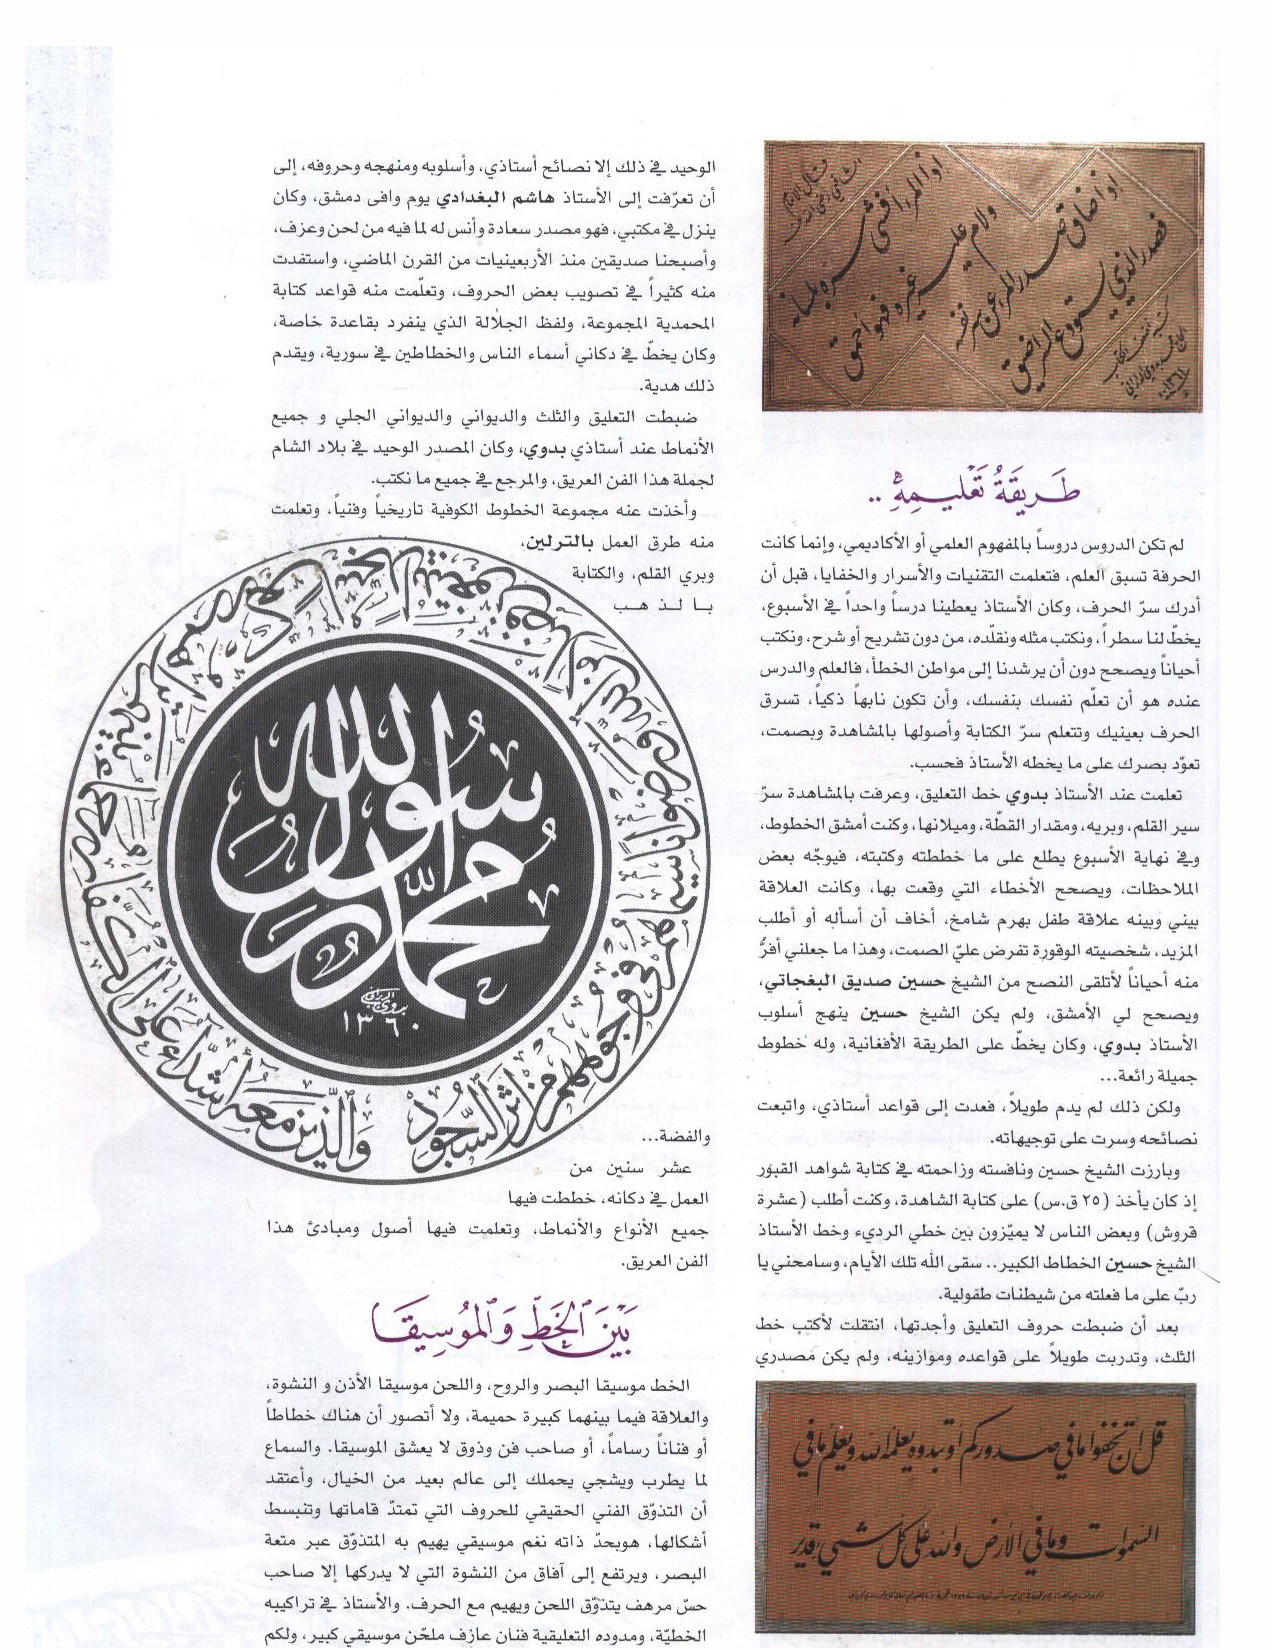 إذا المرء أفشى سره بلسانه
ولام عليه غيره فهو أحمق
إذا ضاق صدر المرء عن سر نفسه
فصدر الذي يستودع السر أضيق
طَرِيقَةُ تَعْلِيمِهِ ..
لم تكن الدروس دروساً بالمفهوم العلمي أو الأكاديمي، وإنما كانت
الحرفة تسبق العلم، فتعلمت التقنيات والأسرار والخفايا، قبل أن
أدرك سرّ الحرف، وكان الأستاذ يعطينا درساً واحداً في الأسبوع،
يخطّ لنا سطراً، ونكتب مثله ونقلّده، من دون تشريح أو شرح، ونكتب
أحياناً ويصحح دون أن يرشدنا إلى مواطن الخطأ، فالعلم والدرس
عنده هو أن تعلّم نفسك بنفسك، وأن تكون نابهاً ذكياً، تسرق
الحرف بعينيك وتتعلم سرّ الكتابة وأصولها بالمشاهدة وبصمت،
تعوّد بصرك على ما يخطه الأستاذ فحسب.
تعلمت عند الأستاذ بدوي خط التعليق، وعرفت بالمشاهدة سرّ
سير القلم، وبريه، ومقدار القطّة، وميلانها، وكنت أمشق الخطوط،
وفي نهاية الأسبوع يطلع على ما خططته وكتبته، فيوجّه بعض
الملاحظات، ويصحح الأخطاء التي وقعت بها، وكانت العلاقة
بيني وبينه علاقة طفل بهرم شامخ، أخاف أن أسأله أو أطلب
المزيد، شخصيته الوقورة تفرض عليّ الصمت، وهذا ما جعلني أفرُّ
منه أحياناً لأتلقى النصح من الشيخ حسين صديق البغجاتي،
ويصحح لي الأمشق، ولم يكن الشيخ حسين ينهج أسلوب
الأستاذ بدوي، وكان يخطّ على الطريقة الأفغانية، وله خطوط
جميلة رائعة...
ولكن ذلك لم يدم طويلاً، فعدت إلى قواعد أستاذي، واتبعت
نصائحه وسرت على توجيهاته.
وبارزت الشيخ حسين ونافسته وزاحمته في كتابة شواهد القبور
إذ كان يأخذ (٢٥ ق.س) على كتابة الشاهدة، وكنت أطلب (عشرة
قروش) وبعض الناس لا يميّزون بين خطي الرديء وخط الأستاذ
الشيخ حسين الخطاط الكبير.. سقى الله تلك الأيام، وسامحني يا
ربّ على ما فعلته من شيطنات طفولية.
بعد أن ضبطت حروف التعليق وأجدتها، انتقلت لأكتب خط
الثلث، وتدربت طويلاً على قواعده وموازينه، ولم يكن مصدري
قل ان تخفوا ما في صدوركم او تبدوه يعلمه الله ويعلم ما في
السموات وما في الارض والله على كل شيء قدير
الوحيد في ذلك إلا نصائح أستاذي، وأسلوبه ومنهجه وحروفه، إلى
أن تعرّفت إلى الأستاذ هاشم البغدادي يوم وافى دمشق، وكان
ينزل في مكتبي، فهو مصدر سعادة وأنس له لما فيه من لحن وعزف،
وأصبحنا صديقين منذ الأربعينيات من القرن الماضي، واستفدت
منه كثيراً في تصويب بعض الحروف، وتعلّمت منه قواعد كتابة
المحمدية المجموعة، ولفظ الجلالة الذي ينفرد بقاعدة خاصة،
وكان يخطّ في دكاني أسماء الناس والخطاطين في سورية، ويقدم
ذلك هدية.
ضبطت التعليق والثلث والديواني والديواني الجلي و جميع
الأنماط عند أستاذي بدوي، وكان المصدر الوحيد في بلاد الشام
لجملة هذا الفن العريق، والمرجع في جميع ما نكتب.
وأخذت عنه مجموعة الخطوط الكوفية تاريخياً وفنياً، وتعلمت
منه طرق العمل بالترلين،
وبري القلم، والكتابة
بالذهب
محمد رسول الله
بدوي الديراني
١٣٦٠
والذين معه أشداء على الكفار رحماء بينهم
في وجوههم من أثر السجود
والفضة...
عشر سنين من
العمل في دكانه، خططت فيها
جميع الأنواع والأنماط، وتعلمت فيها أصول ومبادئ هذا
الفن العريق.
بَيْنَ الخَطِّ وَالمُوسِيقَا
الخط موسيقا البصر والروح، واللحن موسيقا الأذن و النشوة،
والعلاقة فيما بينهما كبيرة حميمة، ولا أتصور أن هناك خطاطاً
أو فناناً رساماً، أو صاحب فن وذوق لا يعشق الموسيقا. والسماع
لما يطرب ويشجي يحملك إلى عالم بعيد من الخيال، وأعتقد
أن التذوّق الفني الحقيقي للحروف التي تمتدّ قاماتها وتنبسط
أشكالها، هوبحدّ ذاته نغم موسيقي يهيم به المتذوّق عبر متعة
البصر، ويرتفع إلى آفاق من النشوة التي لا يدركها إلا صاحب
حسّ مرهف يتذوّق اللحن ويهيم مع الحرف. والأستاذ في تراكيبه
الخطيّة، ومدوده التعليقية فنان عازف ملحّن موسيقي كبير، ولكم